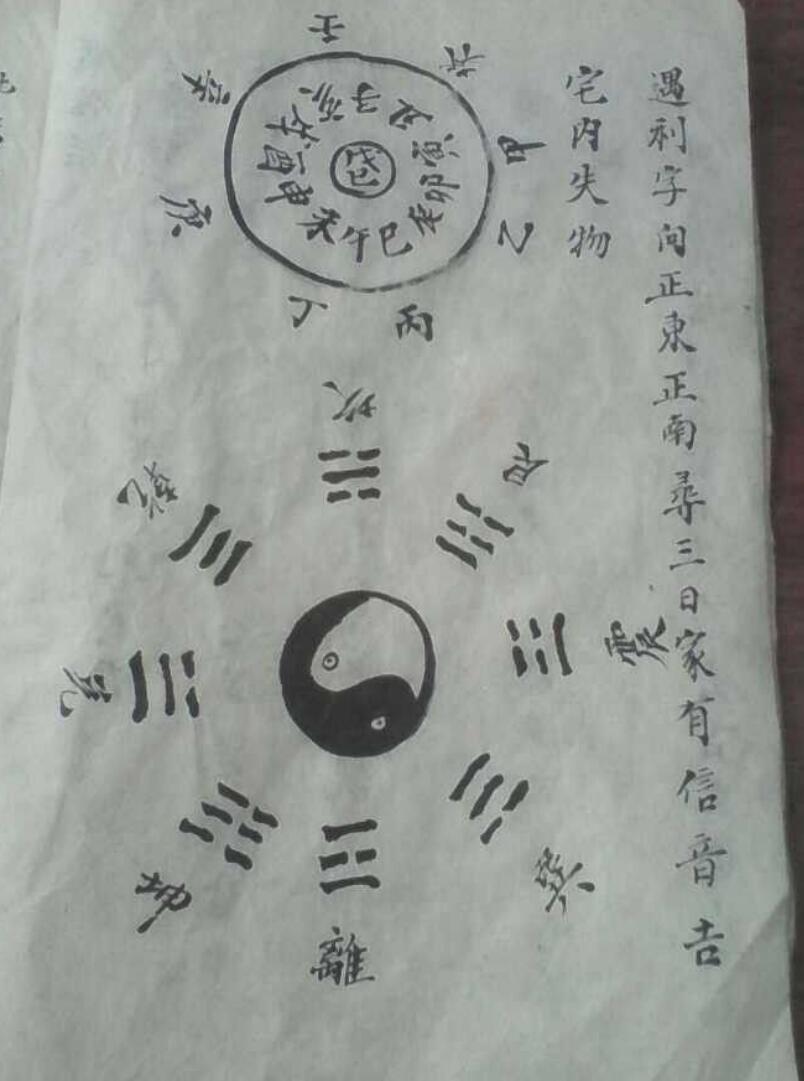 遇利字向正東正南尋三日家有信音吉
宅内失物
壬
癸
甲
乙
丙
丁
庚
辛
子
丑
寅
卯
辰
巳
午
未
申
酉
戌
亥
戊己
坎
艮
震
巽
離
坤
兑
乾